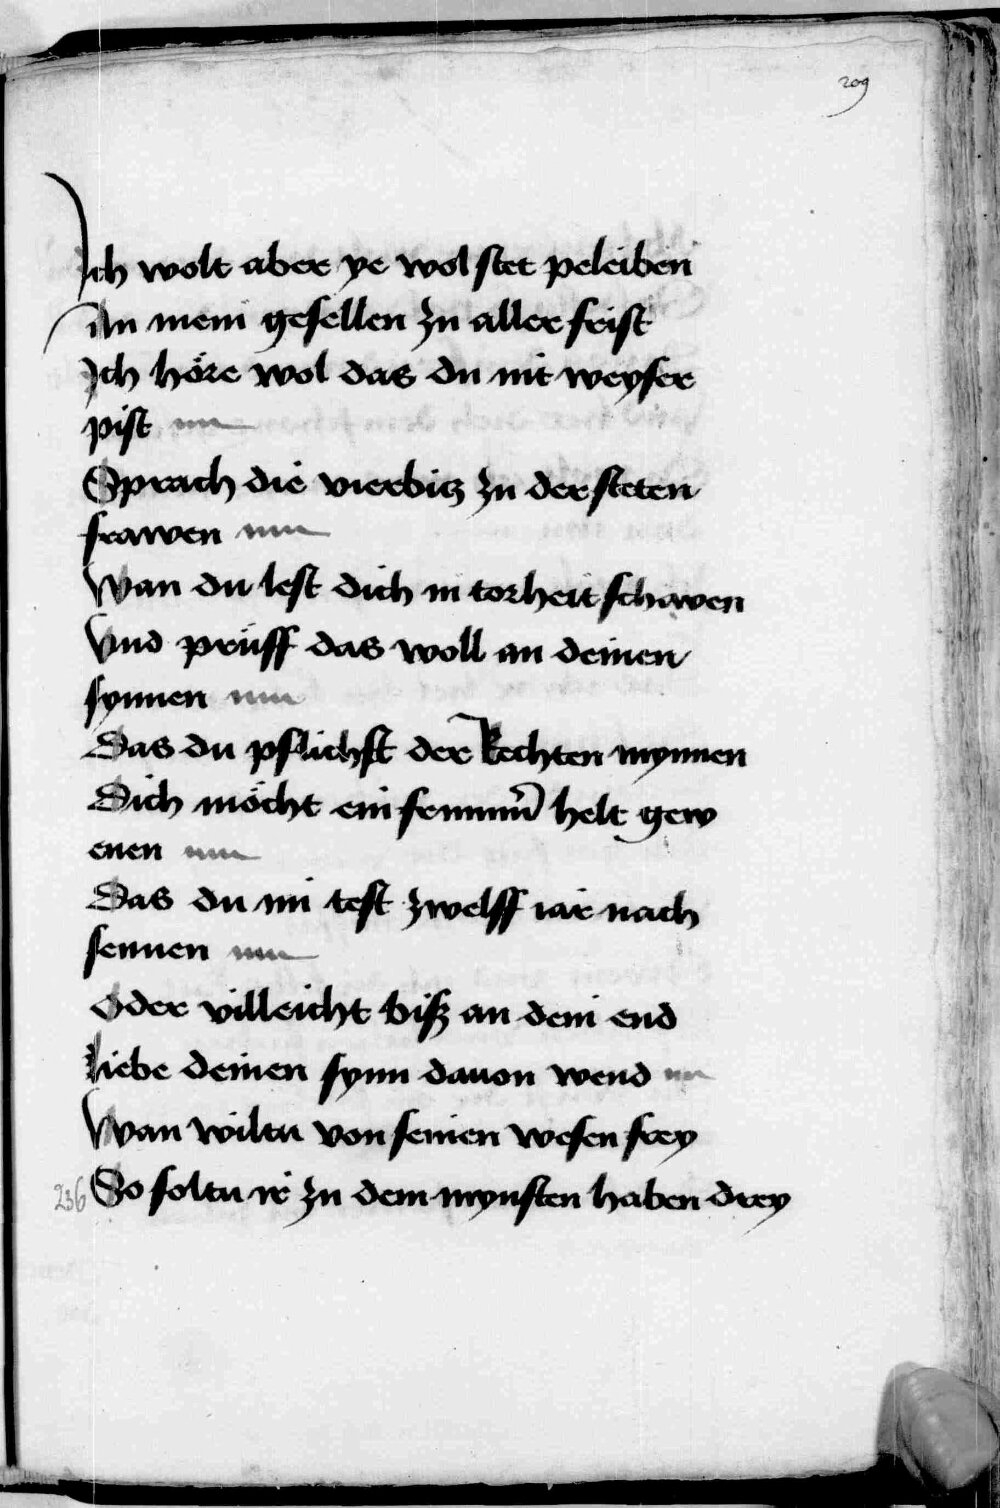 209
Ich wolt aber ye wol stet peleiben
An mein gesellen zu aller frist
Ich höre wol das du nit weyser
pist
Sprach die vierbitz zu der steten
frawen
Wan du lest dich in torheit schawen
Vnd prüff das woll an deinen
synnen
Das du pflichst der Rechten mynnen
Dich möcht ein semm̄ helt gew
enen
Das du im test zwelff iar nach
sennen
Oder villeicht bisz an dein end
Liebe deinen synn dauon wend
Wan wiltu von seinen wesen frey
236 So soltu ir zu dem mynsten haben drey